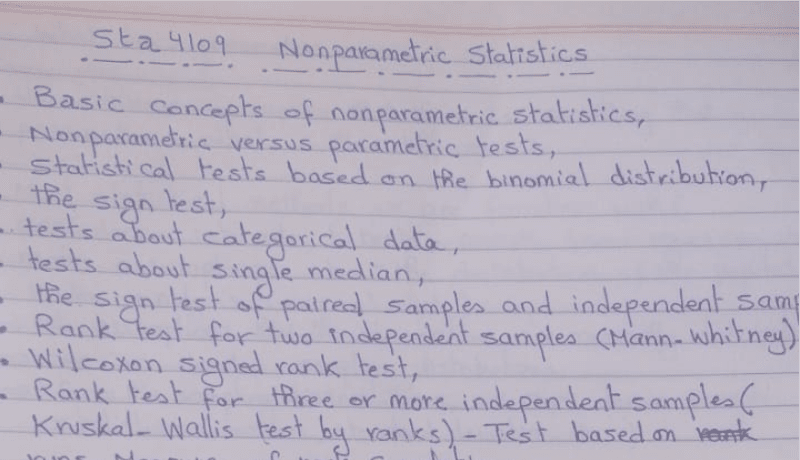 Sta 4109 Nonparametric Statistics
Basic concepts of nonparametric statistics,
Nonparametric versus parametric tests,
Statistical tests based on the binomial distribution,
the sign test,
tests about categorical data,
tests about single median,
the sign test of paired samples and independent samp
Rank test for two independent samples (Mann-Whitney)
Wilcoxon signed rank test,
Rank test for three or more independent samples (
Kruskal-Wallis test by ranks) - Test based on